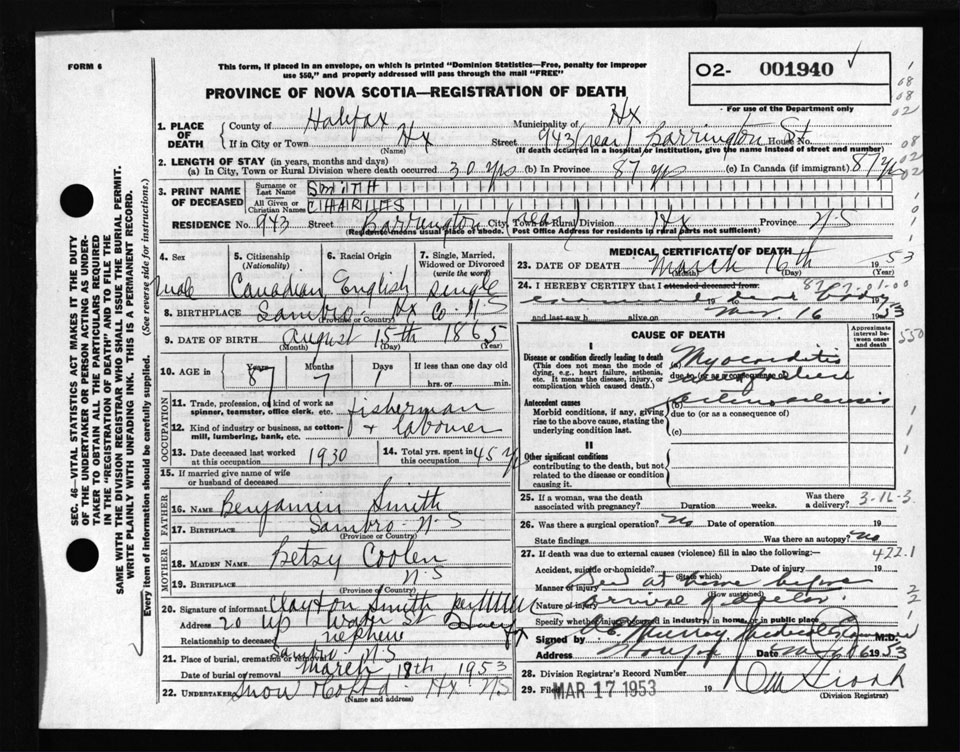 FORM 6
This form, if placed in an envelope, on which is printed "Dominion Statistics—Free, penalty for improper
use $50," and properly addressed will pass through the mail "FREE"
02- 001940
For use of the Department only
PROVINCE OF NOVA SCOTIA—REGISTRATION OF DEATH
1. PLACE OF DEATH
County of Halifax Municipality of Hx
If in City or Town Hx Street 943 (rear) Barrington St House No.
(Name) (If death occurred in a hospital or institution, give the name instead of street and number)
2. LENGTH OF STAY (in years, months and days)
(a) In City, Town or Rural Division where death occurred 30 yrs (b) In Province 87 yrs (c) In Canada (if immigrant) 87 yrs
3. PRINT NAME OF DECEASED
Surname or Last Name SMITH
All Given or Christian Names CHARLES
RESIDENCE No. 943 Street Barrington City, Town or Rural Division Hx Province N.S
(Residence means usual place of abode. Post Office Address for residents in rural parts not sufficient)
4. Sex
male
5. Citizenship
(Nationality)
Canadian
6. Racial Origin
English
7. Single, Married,
Widowed or Divorced
(write the word)
single
8. BIRTHPLACE Sambro Hx Co. N.S
(Province or Country)
9. DATE OF BIRTH August 15th 1865
(Month) (Day) (Year)
10. AGE in
Years Months Days If less than one day old
87 7 1 hrs. or min.
OCCUPATION
11. Trade, profession, or kind of work as
spinner, teamster, office clerk, etc. fisherman
12. Kind of industry or business, as cotton-
mill, lumbering, bank, etc. + labourer
13. Date deceased last worked
at this occupation 1930
14. Total yrs. spent in
this occupation 45 yrs
15. If married give name of wife
or husband of deceased
FATHER
16. Name Benjamin Smith
17. Birthplace Sambro N.S
(Province or Country)
MOTHER
18. Maiden Name Betsy Coolen
19. Birthplace N.S
(Province of Country)
20. Signature of informant Clayton Smith
Address 20 Up Water St
Relationship to deceased nephew
21. Place of burial, cremation or removal Sambro N.S
Date of burial or removal March 18th 1953
22. Undertaker Snow Hx N.S
(Name and address)
MEDICAL CERTIFICATE OF DEATH
23. DATE OF DEATH March 16th 1953
(Month) (Day) (Year)
24. I HEREBY CERTIFY that I attended deceased from:
examined dead body
and last saw h alive on Mar 16 1953
CAUSE OF DEATH
Approximate interval between onset and death
550
I
Disease or condition directly leading to death
(This does not mean the mode of
dying, e.g., heart failure, asthenia,
etc. It means the disease, injury, or
complication which caused death.)
(a) Myocarditis
due to (or as a consequence of)
Antecedent causes
Morbid conditions, if any, giving
rise to the above cause, stating the
underlying condition last.
(b) arteriosclerosis
due to (or as a consequence of)
(c)
II
Other significant conditions
contributing to the death, but not
related to the disease or condition
causing it.
25. If a woman, was the death
associated with pregnancy? Duration weeks. Was there
a delivery? 3-16-3
26. Was there a surgical operation? No Date of operation 19
State findings Was there an autopsy? No
27. If death was due to external causes (violence) fill in also the following:— 422.1
Accident, suicide or homicide? Date of injury 19
(State which)
Manner of injury Died at home before
(How sustained)
Nature of injury arrival of doctor.
Specify whether injury occurred in industry, in home, or in public place
Signed by Murray Medical Examiner M.D.
Address Date Mar 16 1953
28. Division Registrar's Record Number
29. Filed MAR 17 1953 19
DIVISION REGISTRAR
SEC. 46—VITAL STATISTICS ACT MAKES IT THE DUTY
OF THE UNDERTAKER OR PERSON ACTING AS UNDER-
TAKER TO OBTAIN ALL THE PARTICULARS REQUIRED
IN THE "REGISTRATION OF DEATH" AND TO FILE THE
SAME WITH THE DIVISION REGISTRAR WHO SHALL ISSUE THE BURIAL PERMIT.
WRITE PLAINLY WITH UNFADING INK. THIS IS A PERMANENT RECORD.
Every item of information should be carefully supplied. (See reverse side for instructions.)